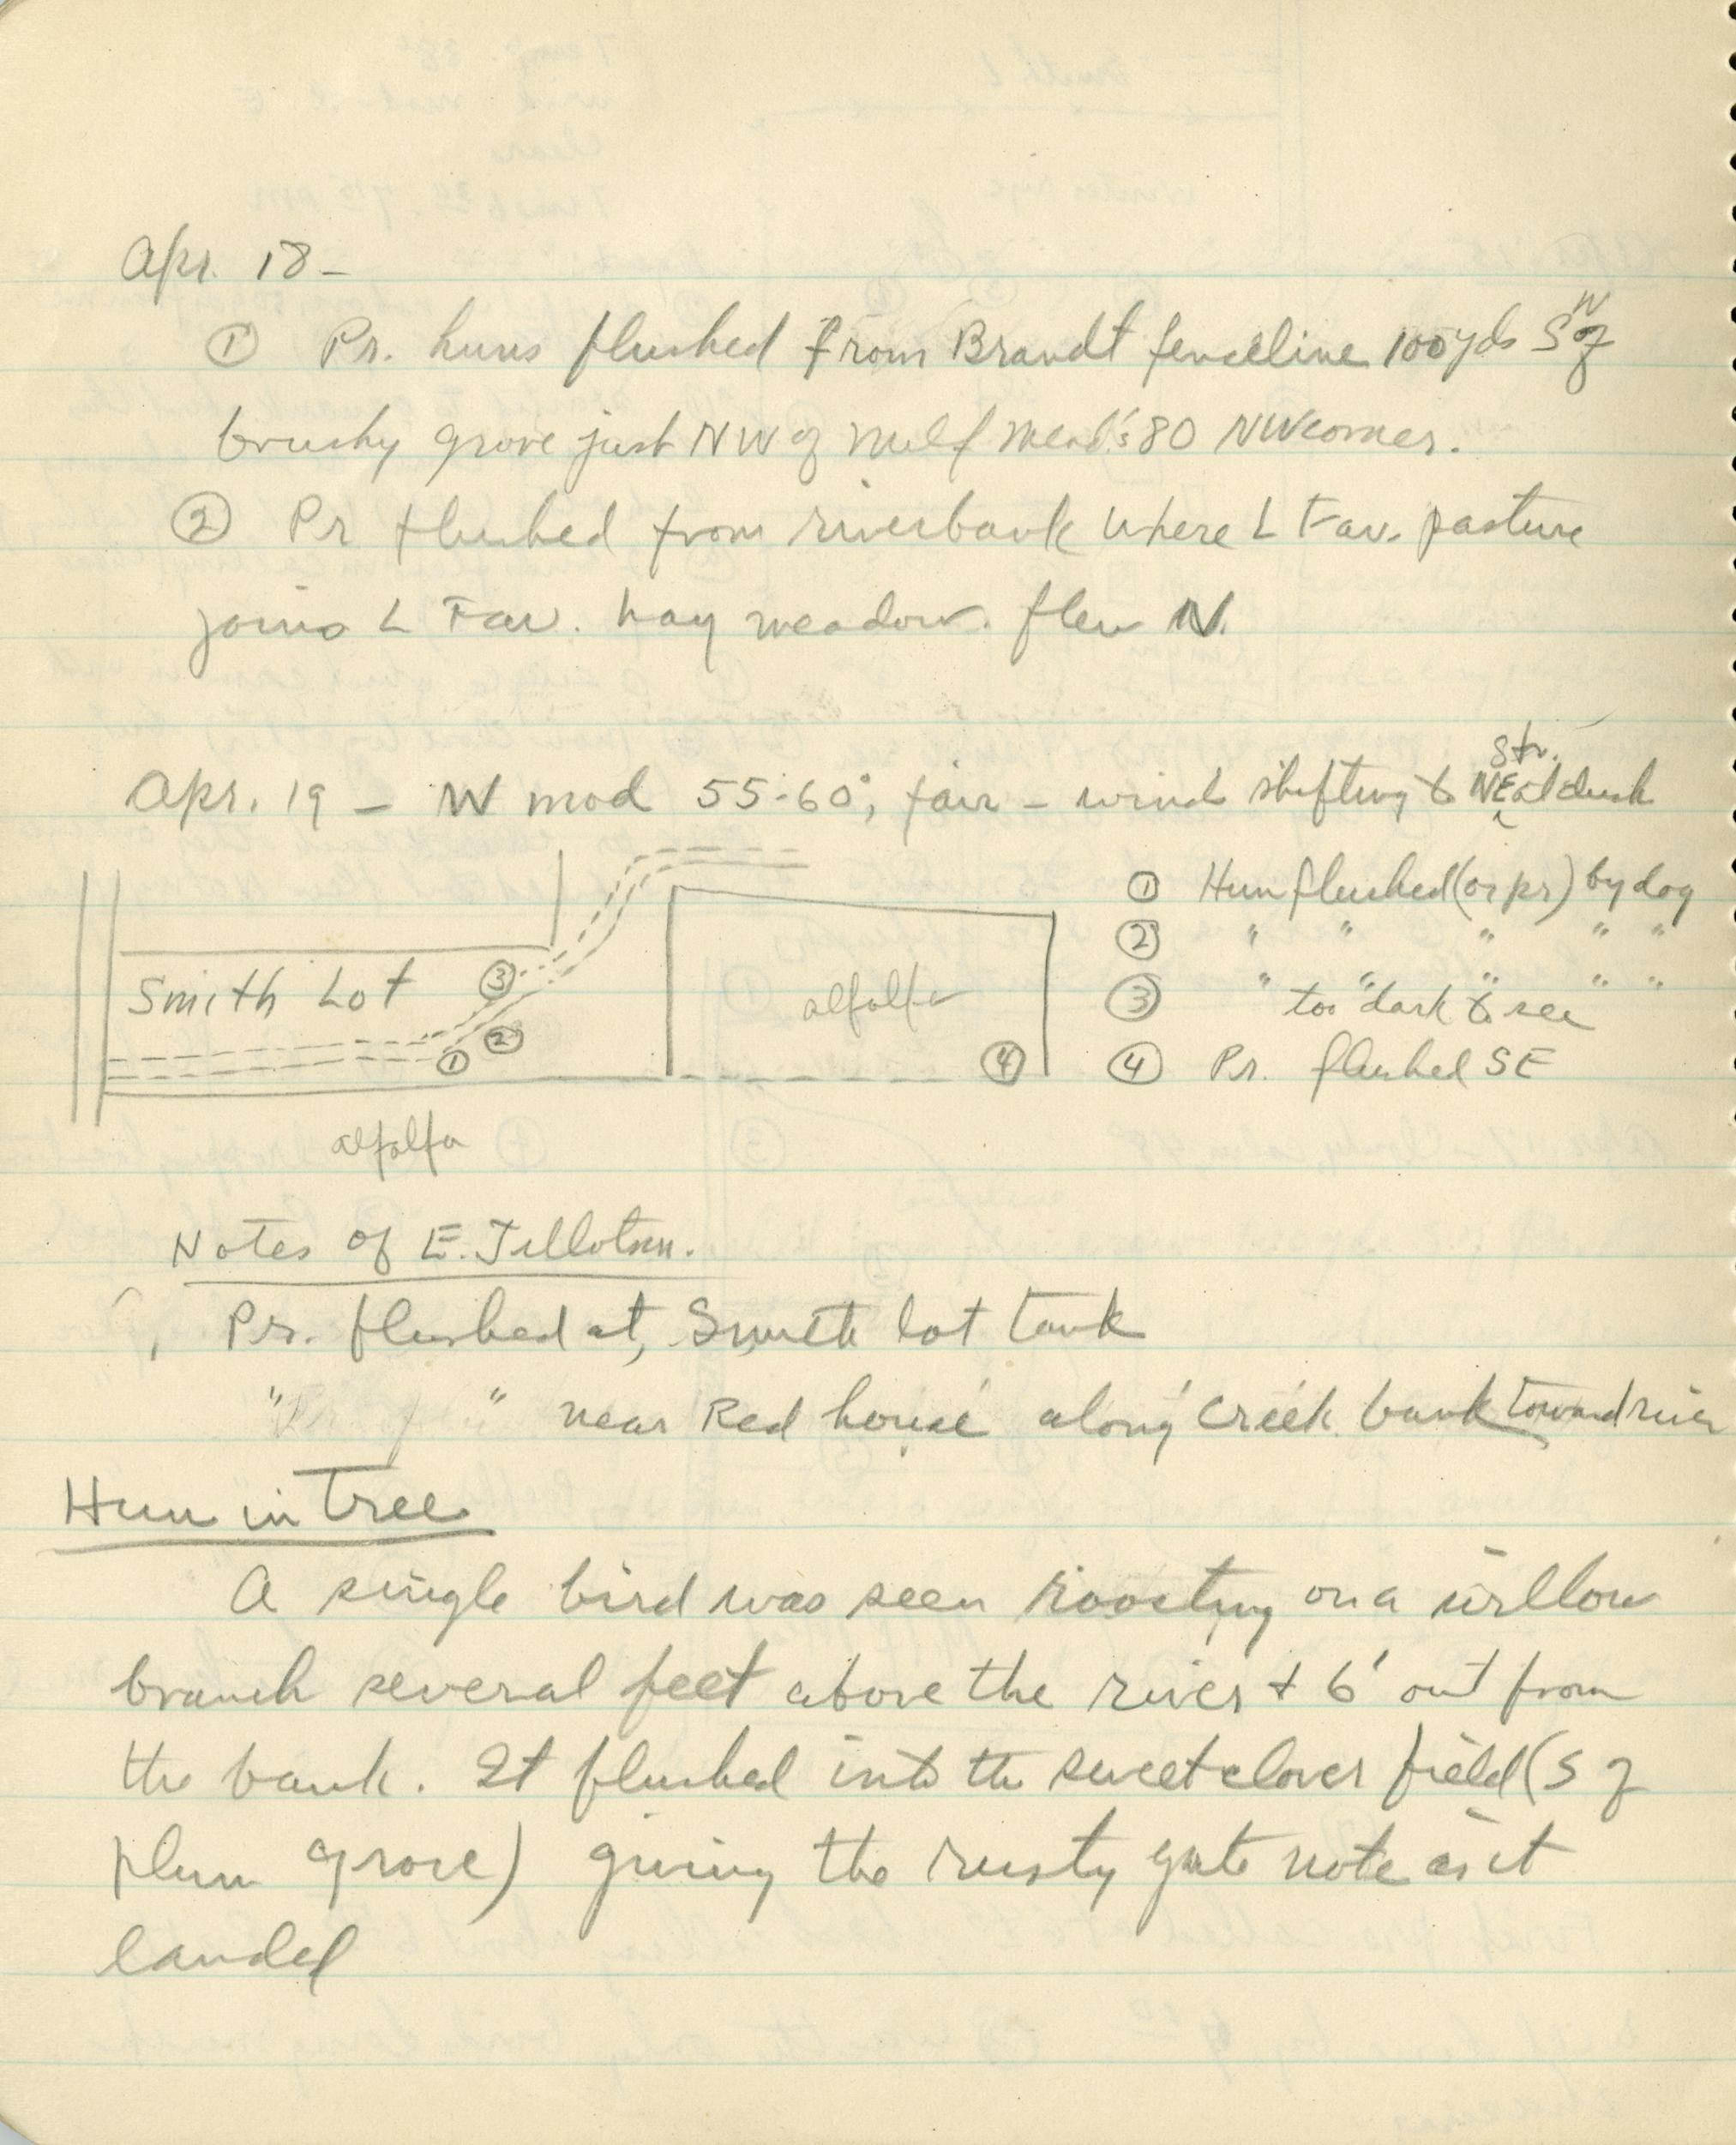 Apr. 18 -
① Pr. huns flushed from Brandt fenceline 100 yds SW of
brushy grove just NW of Milf Mead's 80 NW corner.
② Pr flushed from riverbank where L Fav. pasture
joins L Fav. hay meadow. flew N.
Apr. 19 - W mod 55-60°, fair - wind shifting to Str. NE at dusk
① Hun flushed (or pr) by dog
② " " " " "
③ " " " " "
too dark to see
④ Pr. flushed SE
Smith Lot ③
alfalfa
① ②
④
alfalfa
Notes of E. Tillotson.
Pr. flushed at Smith lot tank
" " near Red house along Creek bank toward river
Hun in Tree
A single bird was seen roosting on a willow
branch several feet above the river + 6' out from
the bank. It flushed into the sweet clover field (S of
plum grove) giving the rusty gate note as it
landed